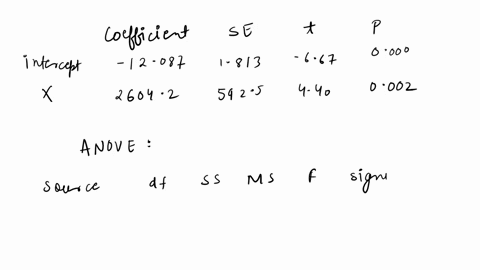 Coefficient SE t P
intercept -12.087 1.813 -6.67 0.000
X 2604.2 592.5 4.40 0.002
ANOVE :
Source df SS MS F signi